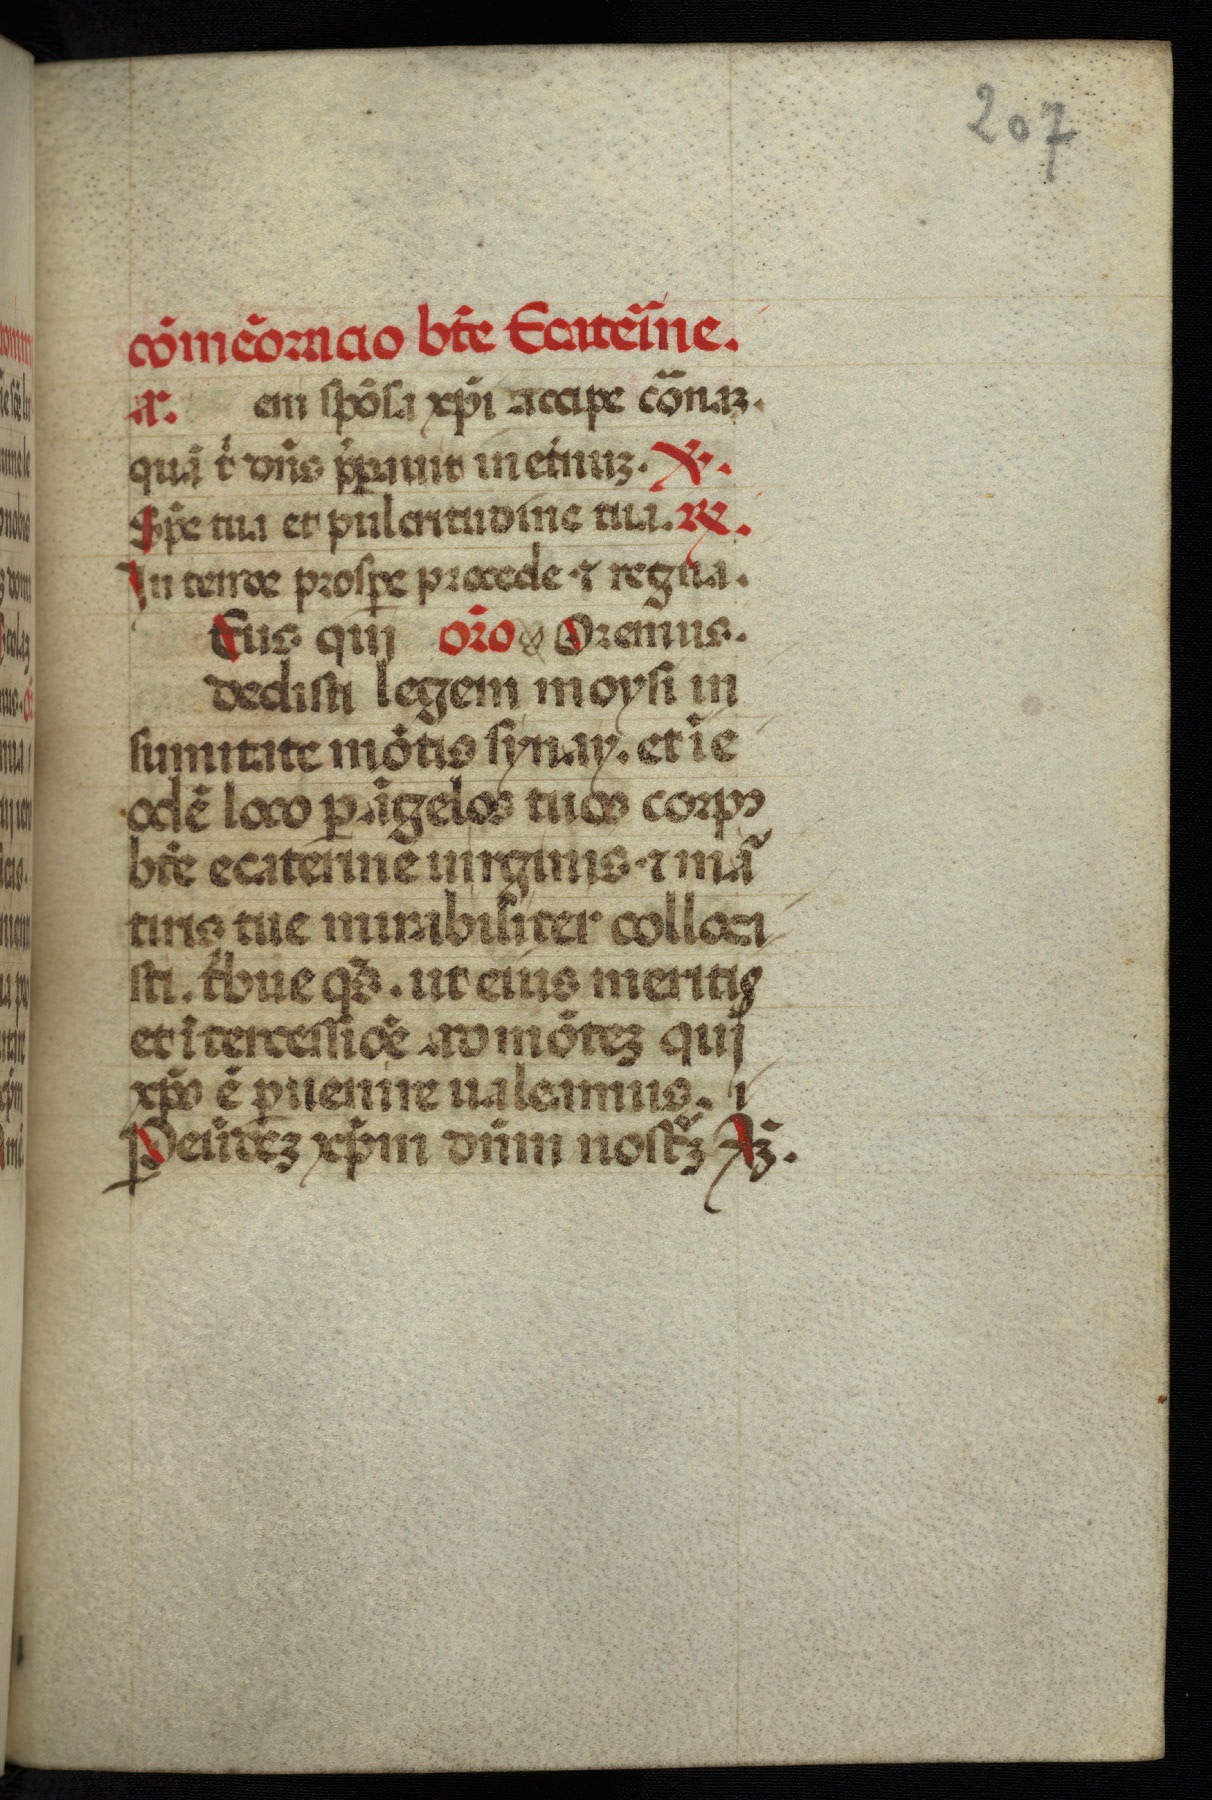 207
cōmēoracio bt̄e Ecateīne.
a. em spōsa xp̄i accipe cōnaꝫ.
quā t̄ dn̄s p̄parauit in et̄nuꝫ. ℣.
Sp̄e tua et pulcritudine tua. ℞.
Intende prosꝑe procede ⁊ regna.
Eus qui orō Oremus.
dedisti legem moysi in
sumitate mōtis synay. et ī e
odē loco ꝑ āgelos tuos corpꝰ
bt̄e ecaterine uirginis ⁊ mā
tiris tue mirabiliter colloca
sti. tͥbue qs̄. ut eius meritis
et ītercessiōe ad mōteꝫ qui
xp̄s ē ꝑuenire ualeamus. i
Peūdeꝫ xp̄m dn̄m nostꝝ Aꝫ.